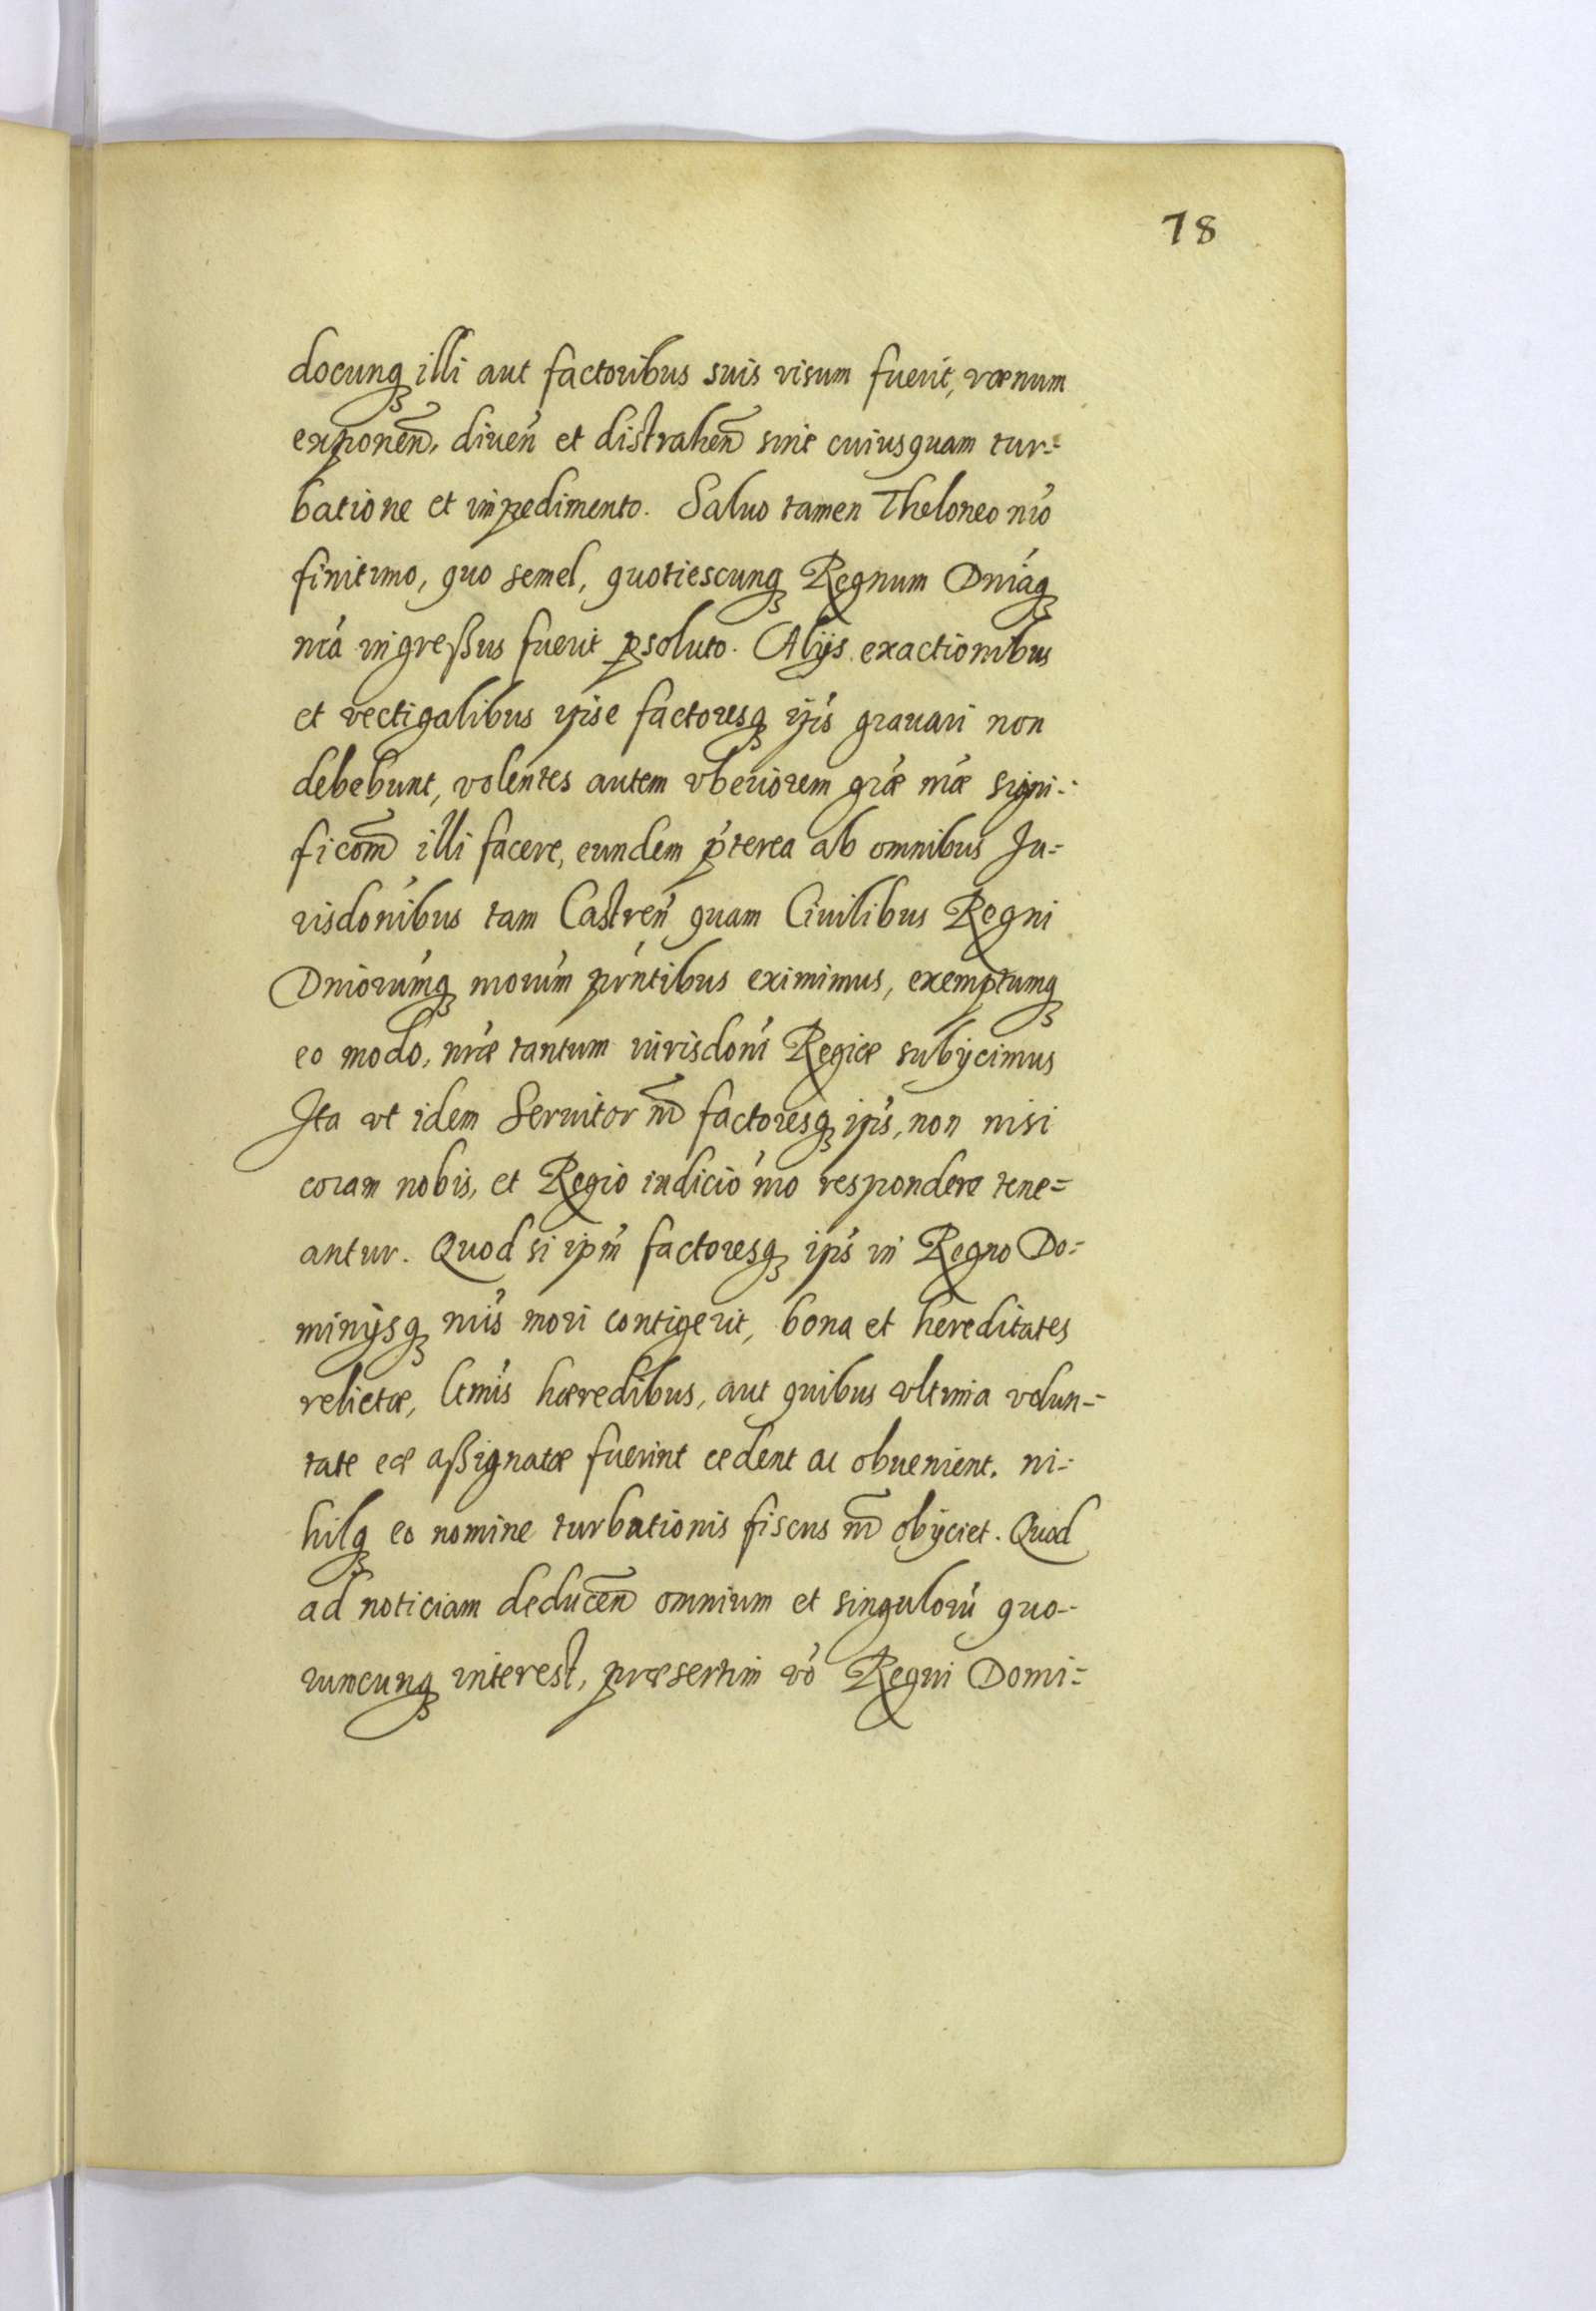 78
docunq₃ illi aut factoribus suis visum fuerit, vænum
exponen̄, diuen̄ et distrahen̄ sine cuiusquam tur=
batione et impedimento. Saluo tamen Theloneo nr̄o
finitimo, quo semel, quotiescunq₃ Regnum Dniaq₃
nr̄a ingreßus fuerit ꝑsoluto. Alijs exactionibus
et vectigalibus ipse factoresq₃ ip̄s grauari non
debebunt, volentes autem vberiorem gr̄æ nr̄æ signi=
ficōm̄ illi facere, eundem p̄terea ab omnibus Ju=
risdon̄ibus tam Castren̄ quam Ciuilibus Regni
Dniorum̄q₃ nrorum̄ pr̄ntibus eximimus, exemptumq₃
eo modo, nr̄æ tantum iurisdon̄i Regiæ subijcimus
Ita vt idem Seruitor nr̄ factoresq₃ ip̄s, non nisi
coram nobis, et Regio iudicio nr̄o respondere tene=
antur. Quod si ipm̄ factoresq₃ ip̄s in Regno Do=
minijsq₃ nr̄is mori contigerit, bona et hereditates
relictæ, ltm̄is hæredibus, aut quibus vltima volun=
tate eæ aßignatæ fuerint cedent ac obuenient. ni=
hilq₃ eo nomine turbationis fiscus nr̄ obijciet. Quod
ad noticiam deducen̄ omnium et singulorū quo=
rumcunq₃ interest, præsertim vō Regni Domi=